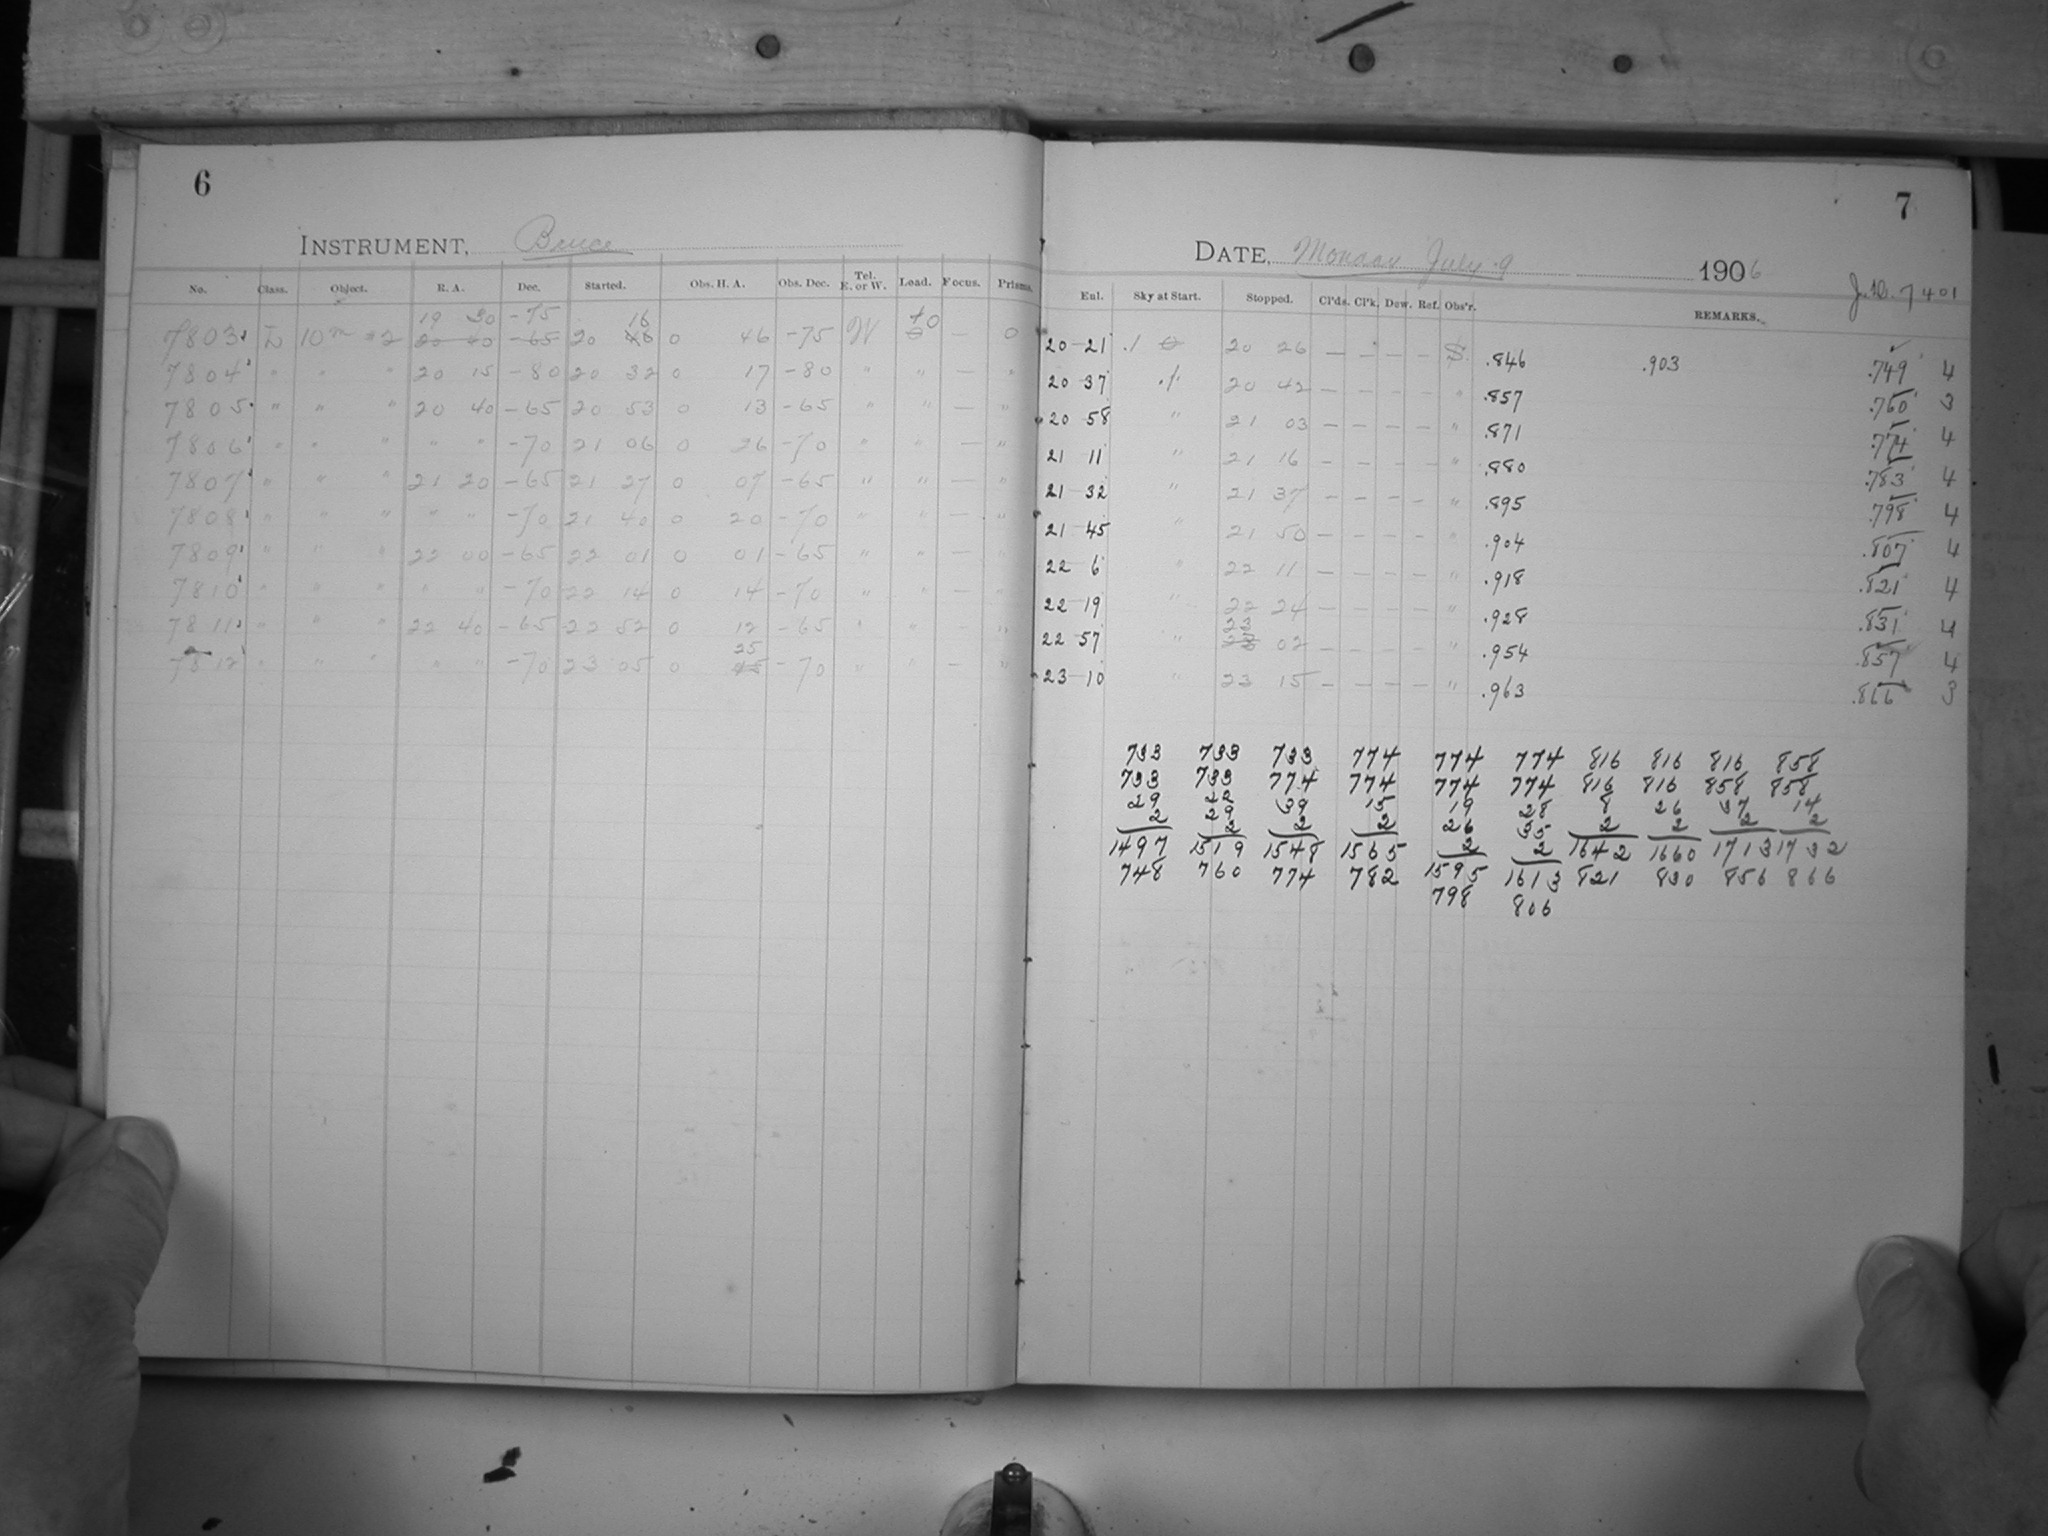 6
INSTRUMENT, Bruce
No. Class. Object. R. A. Dec. Started. Obs. H. A. Obs. Dec. Tel. E. or W. Load. Focus. Prisms.
19 30 -75 16 10
7803 L 10m *2 20 40 -65 20 46 0 46 -75 W 0 — 0
7804 " " " 20 15 -80 20 32 0 17 -80 " " — "
7805 " " " 20 40 -65 20 53 0 13 -65 " " — "
7806 " " " " " -70 21 06 0 26 -70 " " — "
7807 " " " 21 20 -65 21 27 0 07 -65 " " — "
7808 " " " " " -70 21 40 0 20 -70 " " — "
7809 " " " 22 00 -65 22 01 0 01 -65 " " — "
7810 " " " " " -70 22 14 0 14 -70 " " — "
7811 " " " 22 40 -65 22 52 0 12 -65 " " — "
25
7812 " " " " " -70 23 05 0 45 -70 " " — "
7
DATE, Monday July 9 1906
J.D. 7401
Enl. Sky at Start. Stopped. Cl'ds. Cl'k. Dew. Ref. Obs'r. REMARKS.
20 21 .1 0 20 26 — — — — S. .846 .903 .749 4
20 37 .1 20 42 — — — — " .857 .760 3
20 58 " 21 03 — — — — " .871 .774 4
21 11 " 21 16 — — — — " .880 .783 4
21 32 " 21 37 — — — — " .895 .798 4
21 45 " 21 50 — — — — " .904 .807 4
22 6 " 22 11 — — — — " .918 .821 4
22 19 " 22 24 — — — — " .928 .831 4
23
22 57 " 02 — — — — " .954 .857 4
23 10 " 23 15 — — — — " .963 .866 3
733 733 733 774 774 774 816 816 816 858
733 733 774 774 774 774 816 816 858 858
29 22 39 15 19 28 8 26 37 14
2 29 2 2 26 35 2 2 2 2
2 2 2
1497 1519 1548 1565 1595 1613 1642 1660 1713 1732
748 760 774 782 798 806 821 830 856 866